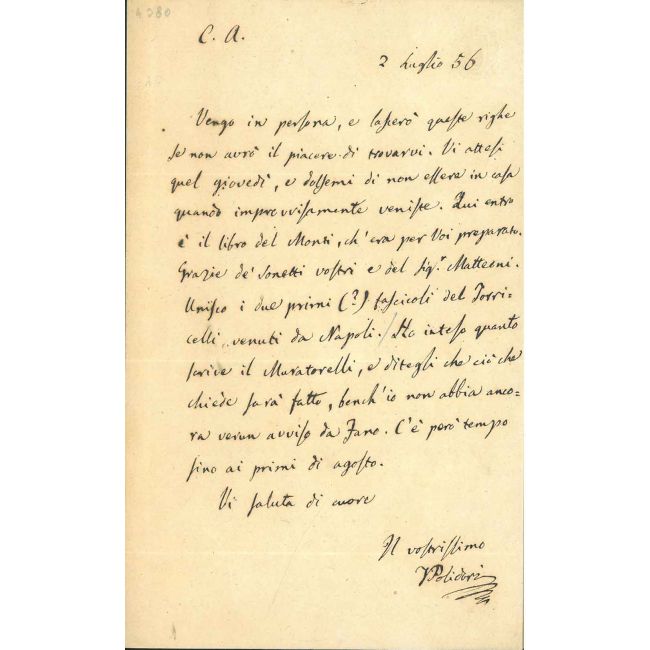 4280
C. A.
2 Luglio 56
Vengo in persona, e lascerò queste righe
se non avrò il piacere di trovarvi. Vi attesi
quel giovedì, e dolsemi di non essere in casa
quando improvvisamente veniste. Qui entro
è il libro del Monti, ch'era per Voi preparato.
Grazie de' Sonetti vostri e del Sigr. Matteoni.
Unisco i due primi (?) fascicoli del Torri-
celli, venuti da Napoli. Ho inteso quanto
scrive il Muratorelli, e ditegli che ciò che
chiede sarà fatto, bench'io non abbia anco-
ra verun avviso da Fano. C'è però tempo
sino ai primi di agosto.
Vi saluta di cuore
Il vostrissimo
Polidori